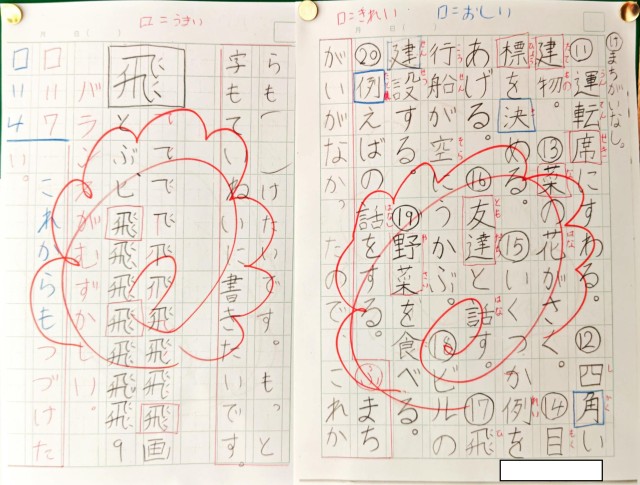 □=きれい □=おしい
⑰まちがいなし。
⑪運転席にすわる。⑫四角い
建物。⑬菜の花がさく。⑭目
標を決める。⑮いくつか例を
あげる。⑯友達と話す。⑰飛
行船が空にうかぶ。⑱ビルの
建設する。⑲野菜を食べる。
⑳例えばの話をする。まち
がいがなかったので、これか
□=うまい
らもつづけたいです。もっと
字もていねいに書きたいです。
飛
飛飛飛飛画
とぶ 飛飛飛飛飛飛飛9
バランスがむずかしい。
□=7 これからもつづけた
□=4 い。